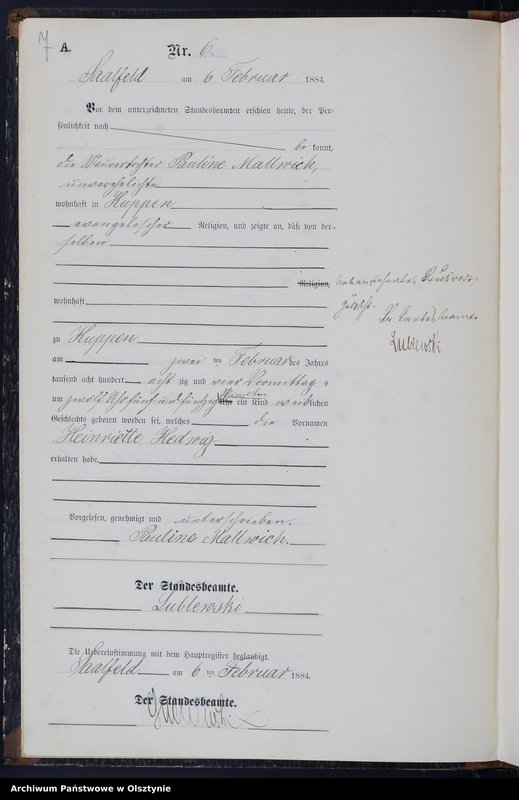 7
A.
Nr. 6.
Saalfeld am 6 Februar 1884.
Vor dem unterzeichneten Standesbeamten erschien heute, der Per-
sönlichkeit nach
be kannt,
die Maurertochter Pauline Mallwich,
unverehelichte
wohnhaft zu Kuppen
evangelischer Religion, und zeigte an, daß von der-
selben
Religion,
wohnhaft
zu Kuppen
am zwei ten Februar des Jahres
tausend acht hundert acht zig und vier Vormittag s
um zwölf Uhr fünf und fünfzig Minuten
Uhr ein Kind weiblichen
Geschlechts geboren worden sei, welches die Vornamen
Heinriette, Hedwig
erhalten habe.
Vorgelesen, genehmigt und unterschrieben.
Pauline Mallwich.
Der Standesbeamte.
Lublewski
Die Uebereinstimmung mit dem Hauptregister beglaubigt.
Saalfeld am 6 ten Februar 1884.
Der Standesbeamte.
Der Standesbeamte
Lublewski
Archiwum Państwowe w Olsztynie